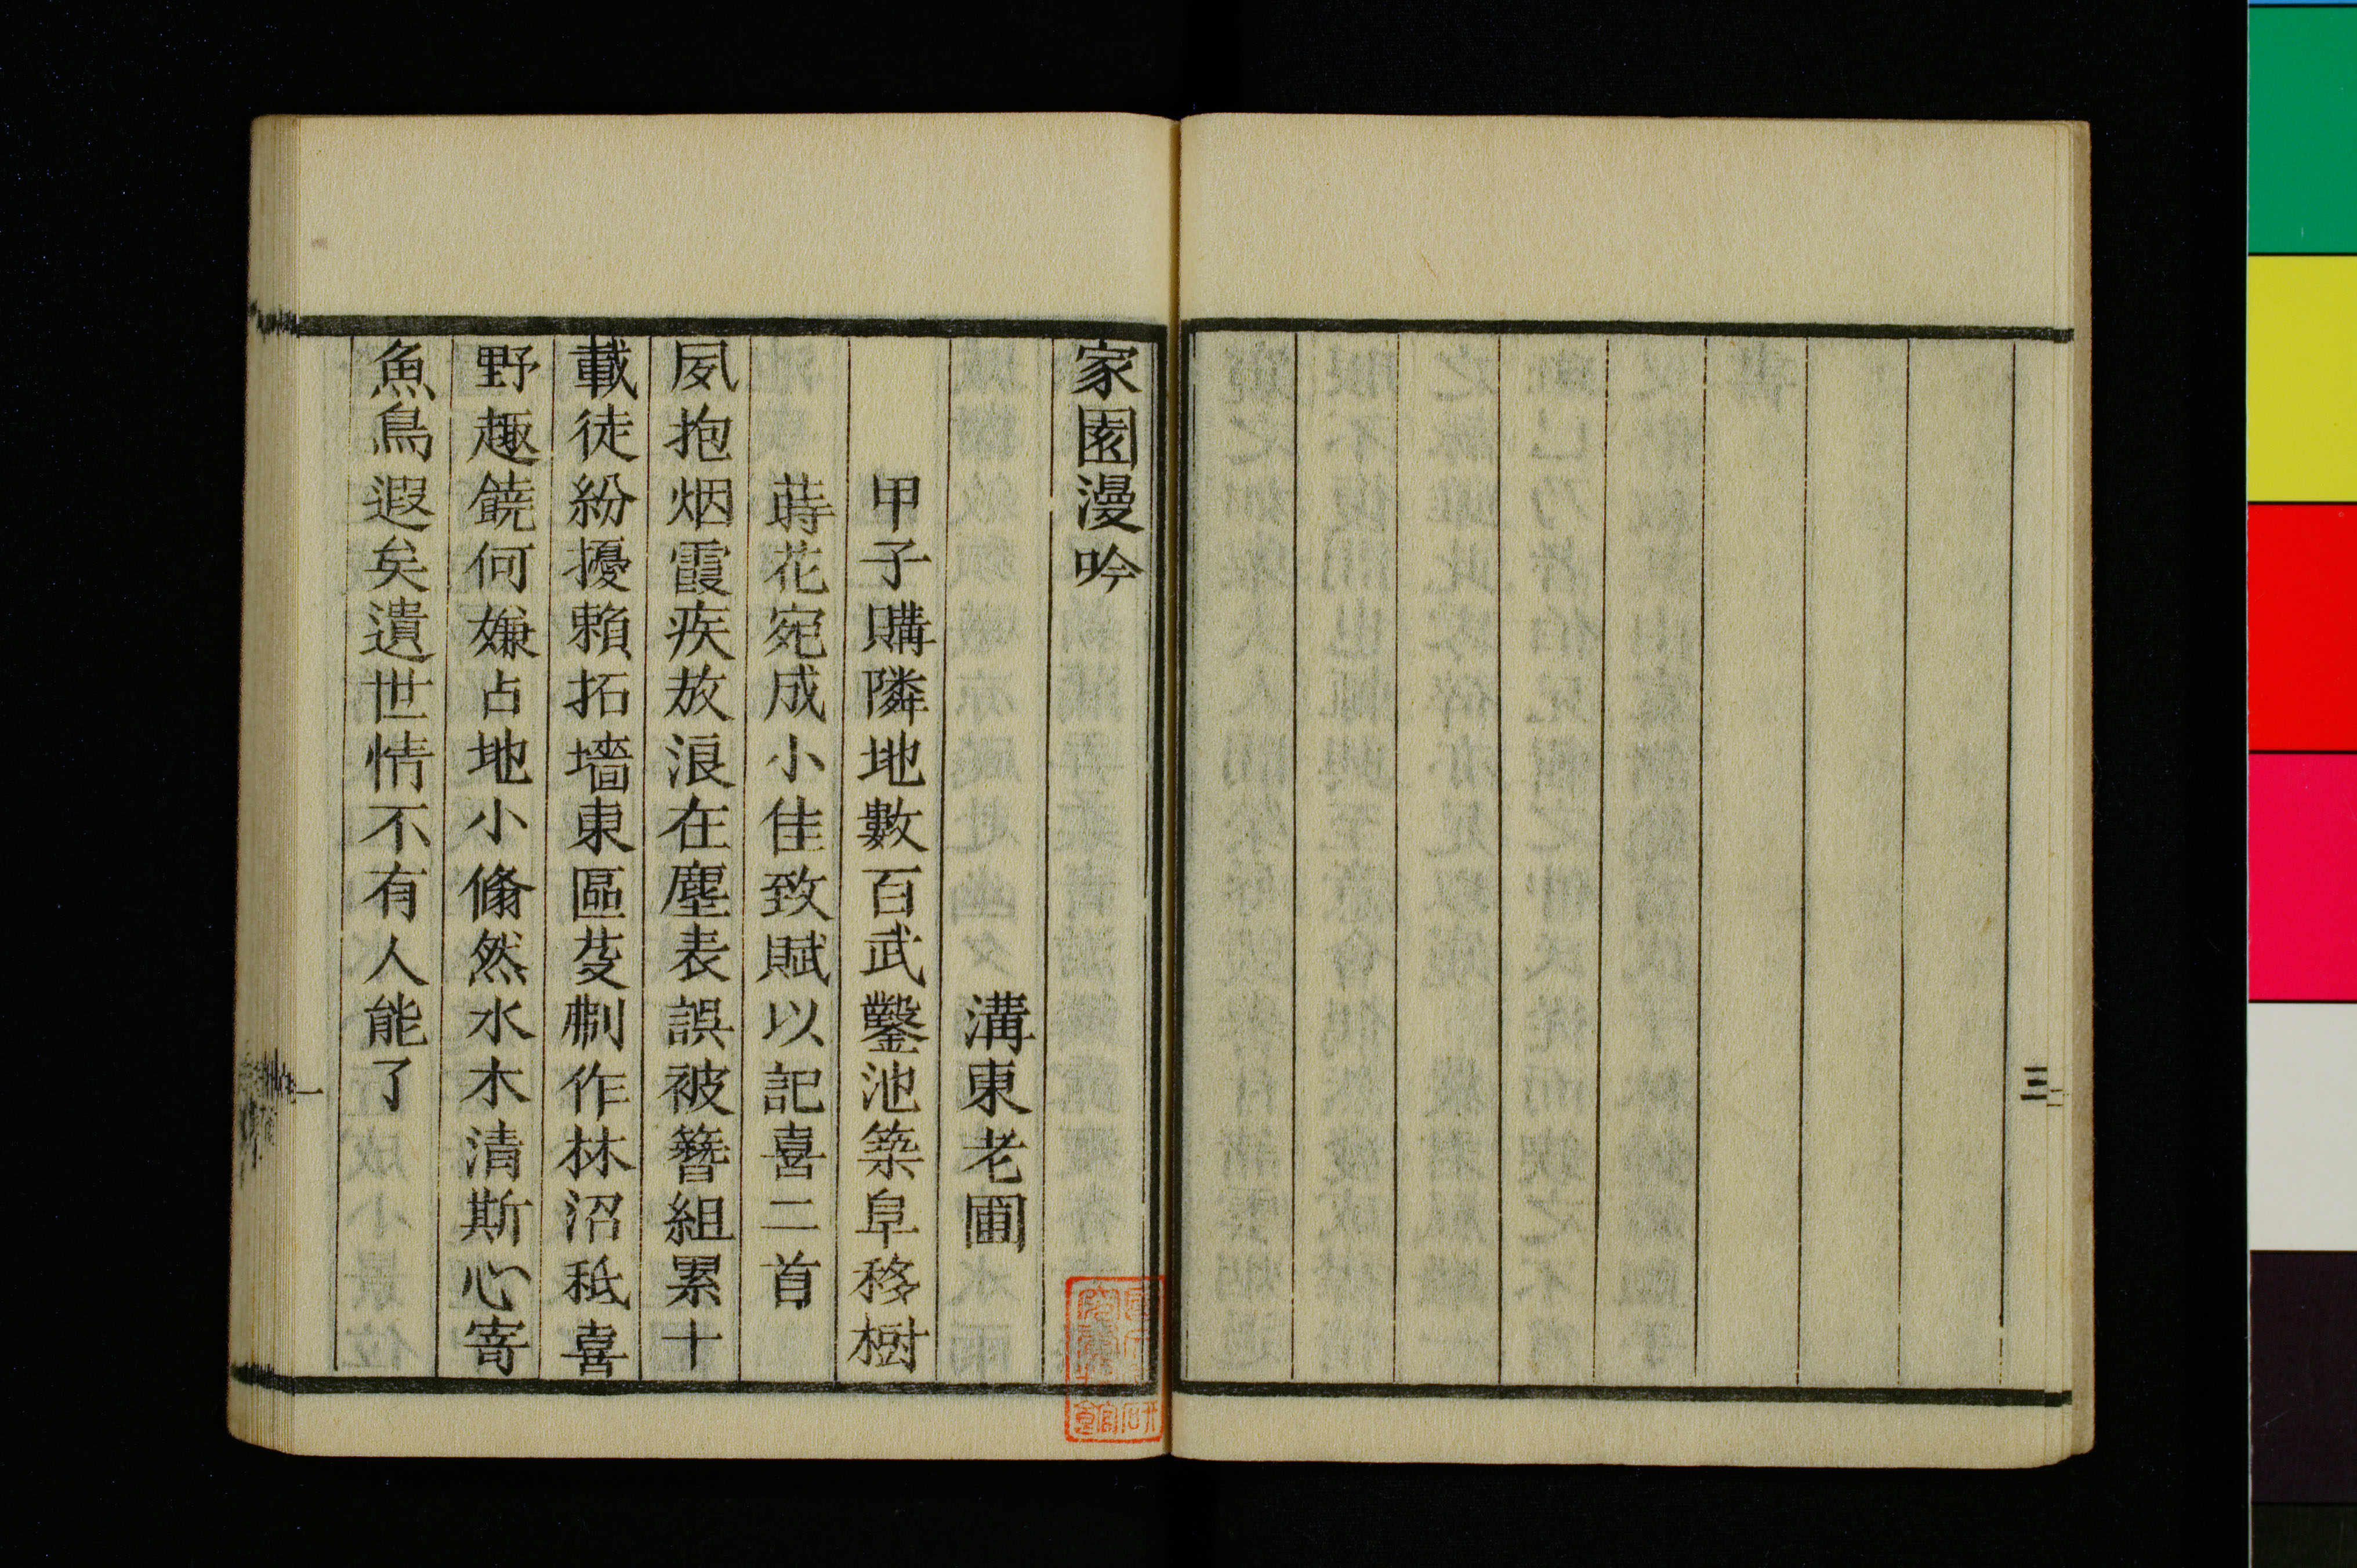 三
家園漫吟
溝東老圃
甲子購隣地數百武鑿池築阜移樹
蒔花宛成小佳致賦以記喜二首
夙抱烟霞疾放浪在塵表誤被簪組累十
載徒紛擾賴拓墻東區芟剃作林沼秪喜
野趣饒何嫌占地小翛然水木清斯心寄
魚鳥遐矣遺世情不有人能了
一